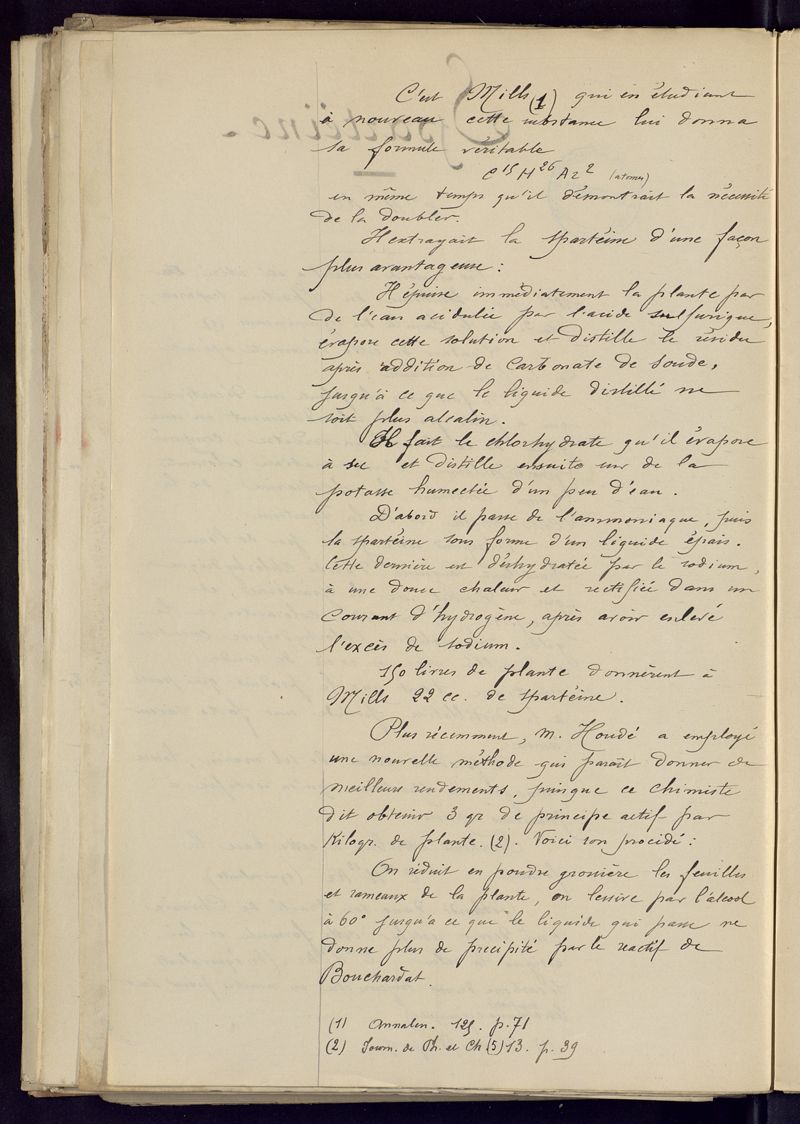 C'est Mills (1) qui en étudiant
à nouveau cette substance lui donna
sa formule véritable
C15 H26 Az2 (atomes)
en même temps qu'il démontrait la nécessité
de la doubler.
Il extrayait la spartéine d'une façon
plus avantageuse :
Il épuise immédiatement la plante par
de l'eau acidulée par l'acide sulfurique,
évapore cette solution et distille le résidu
après addition de Carbonate de soude,
jusqu'à ce que le liquide distillé ne
soit plus alcalin.
Il fait le chlorhydrate qu'il évapore
à sec et distille ensuite sur de la
potasse humectée d'un peu d'eau.
D'abord il passe de l'ammoniaque, puis
la spartéine sous forme d'un liquide épais.
Cette dernière est déshydratée par le sodium,
à une douce chaleur et rectifiée dans un
courant d'hydrogène, après avoir enlevé
l'excès de sodium.
150 livres de plante donnèrent à
Mills 22 cc. de spartéine.
Plus récemment, M. Houdé a employé
une nouvelle méthode qui paraît donner de
meilleurs rendements, puisque ce chimiste
dit obtenir 3 gr de principe actif par
Kilogr. de plante. (2). Voici son procédé :
On réduit en poudre grossière les feuilles
et rameaux de la plante, on lessive par l'alcool
à 60° jusqu'a ce que le liquide qui passe ne
donne plus de precipité par le reactif de
Bouchardat.
(1) Annalen. 125. p. 71
(2) Journ. de Ph. et Ch (5) 13. p. 39
Spartéine